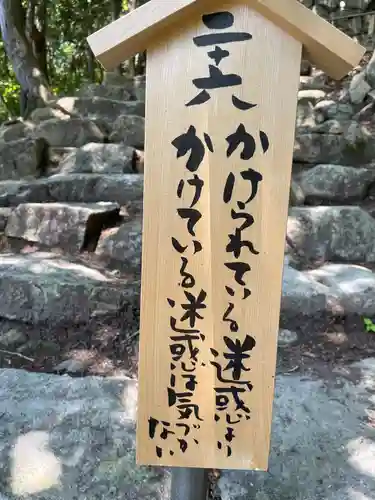 二十六
かけられている迷惑より
かけている迷惑は気づか
ない